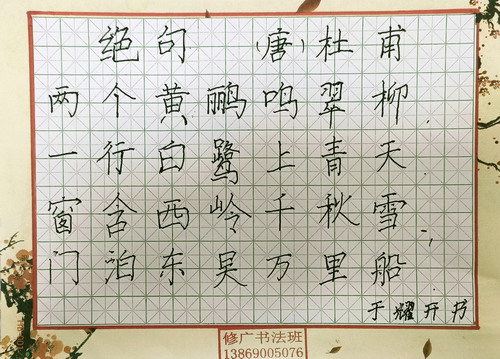 绝句 (唐)杜甫
两个黄鹂鸣翠柳.
一行白鹭上青天
窗含西岭千秋雪.,
门泊东吴万里船
于耀开书
修广书法班
13869005076